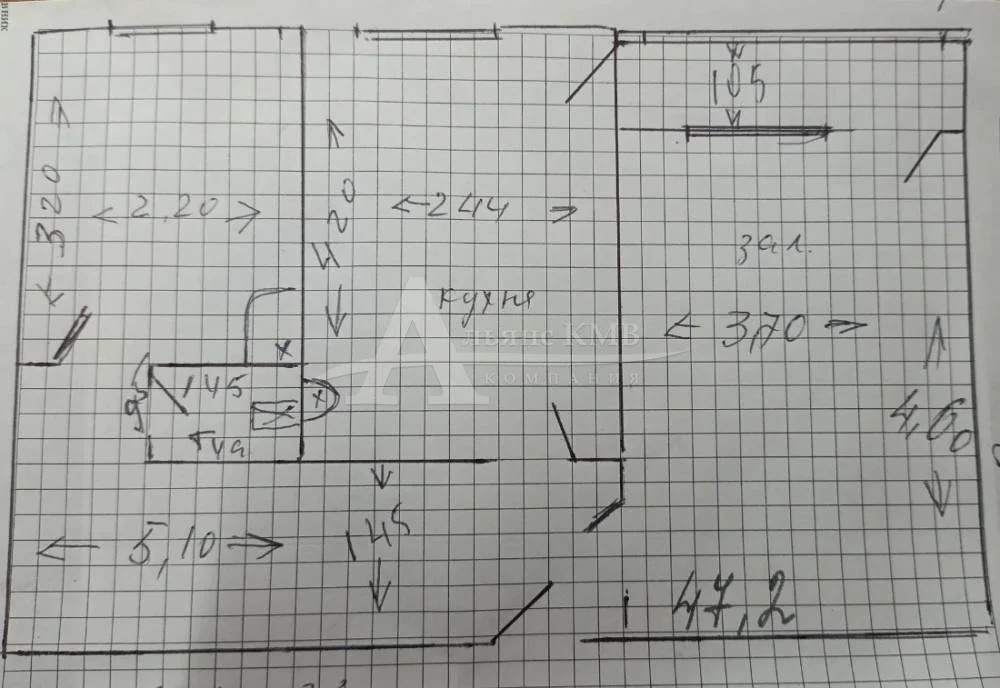 105
320
2,20
420
244
зал.
кухня
Альянс КМВ
компания
3,70
145
95
4,60
Туа
5,10
145
47,2